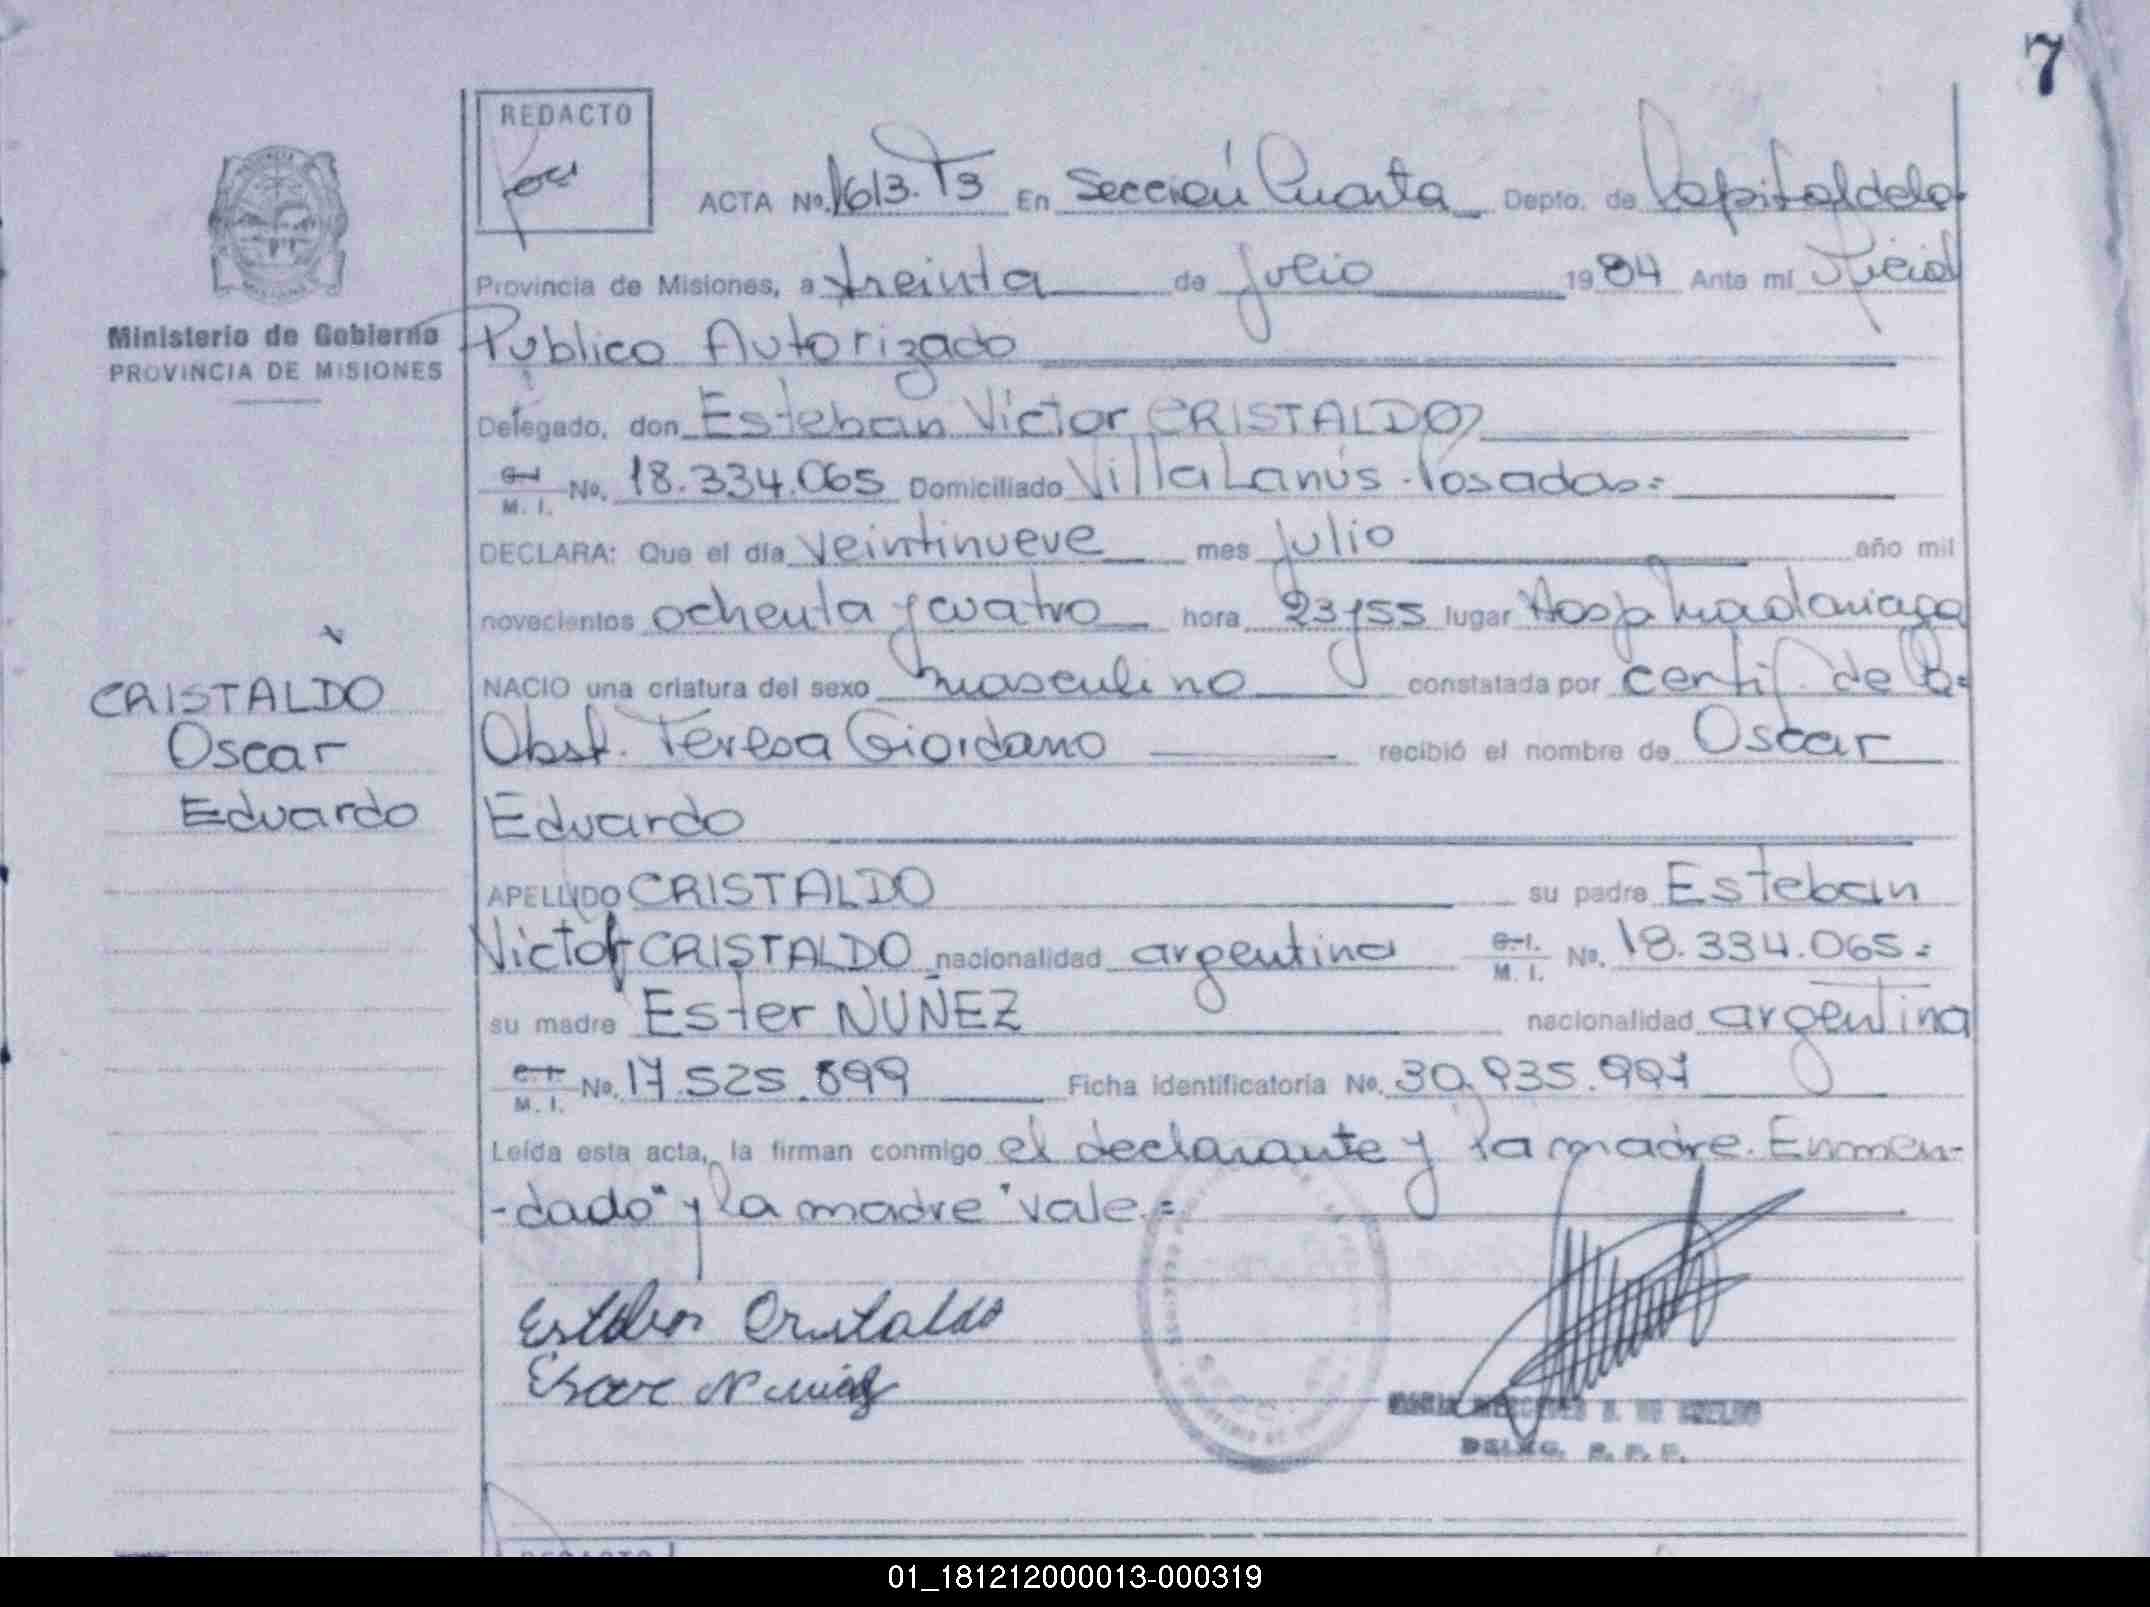 7
REDACTO
ACTA No. 1613. T3 En Sección Cuarta Depto. de Capital de la
Provincia de Misiones, a treinta de julio 1984 Ante mí Oficial
Público Autorizado
Ministerio de Gobierno
PROVINCIA DE MISIONES
Delegado, don Esteban Victor CRISTALDO
C.I. M. I. No. 18.334.065 Domiciliado Villa Lanús - Posadas=
DECLARA: Que el día veintinueve mes julio año mil
novecientos ochenta y cuatro hora 23y55 lugar Hosp Madariaga
NACIO una criatura del sexo masculino constatada por certif. de la
Obst. Teresa Giordano recibió el nombre de Oscar
Eduardo
CRISTALDO
Oscar
Eduardo
APELLIDO CRISTALDO su padre Esteban
Victor CRISTALDO nacionalidad argentina C.I. M. I. No. 18.334.065=
su madre Ester NUÑEZ nacionalidad argentina
C.I. M. I. No. 17.525.899 Ficha identificatoria No. 30.935.997
Leída esta acta, la firman conmigo el declarante y la madre. Enmen-
-dado "y la madre" vale.=
Esteban Cristaldo
DELEG. R. P. P.
REDACTO
01_181212000013-000319